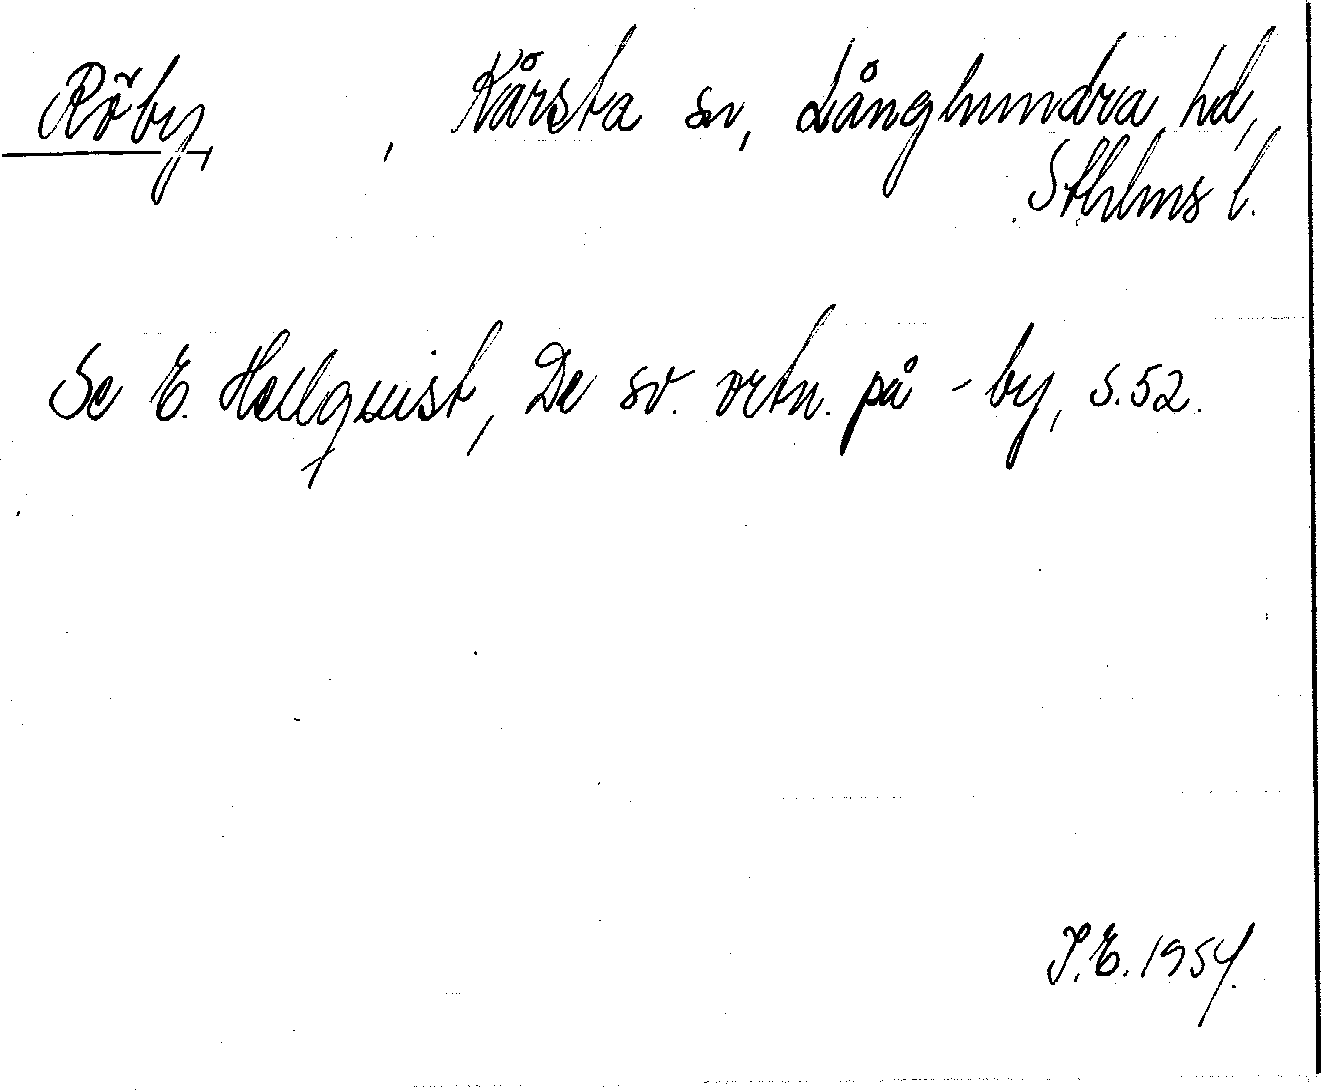 Röby, , Kårsta sn, Långhundra hd,
Sthlms l.
Se E. Hellquist, De sv. ortn. på -by, s. 52.
I.E. 1954.